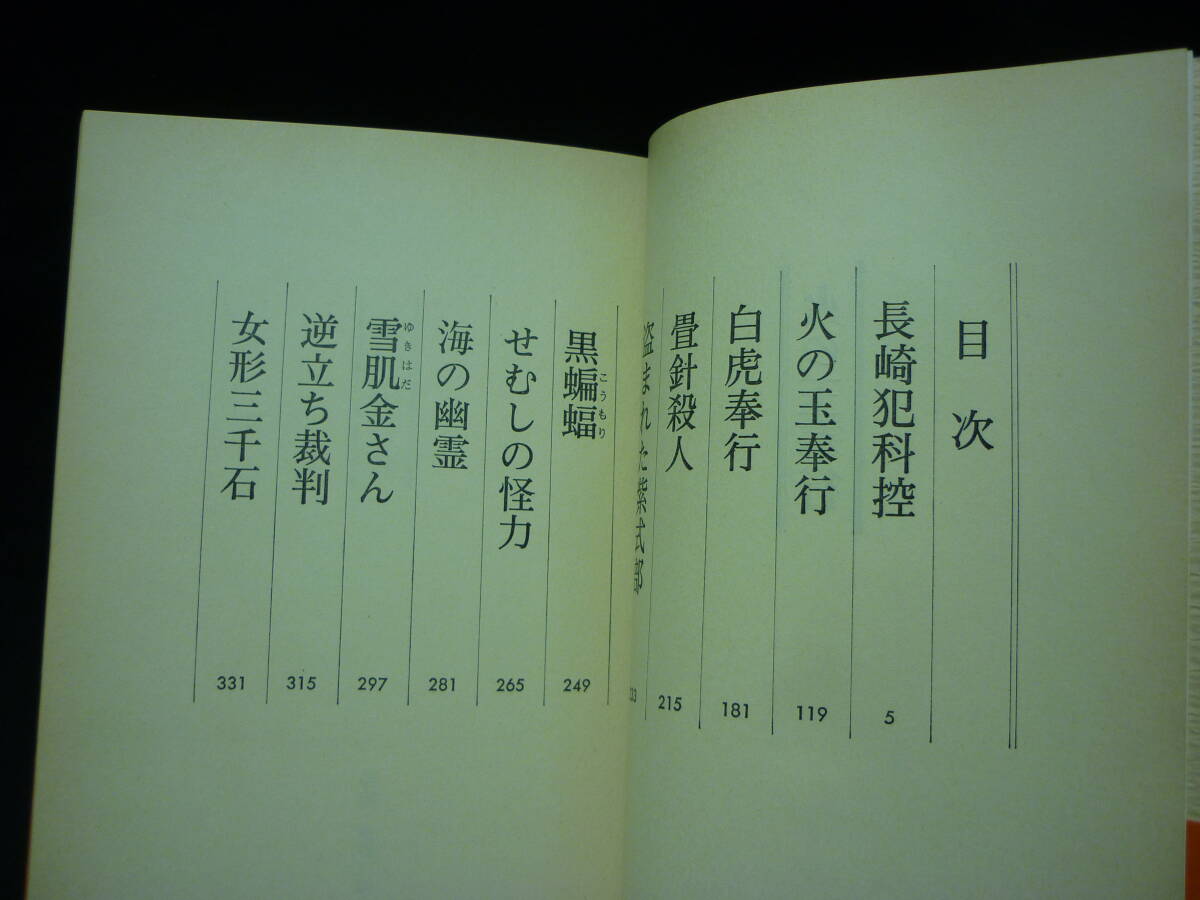 目次
長崎犯科控 5
火の玉奉行 119
白虎奉行 181
畳針殺人 215
盗まれた紫式部
黒蝙蝠 249
こうもり
せむしの怪力 265
海の幽霊 281
雪肌金さん 297
ゆきはだ
逆立ち裁判 315
女形三千石 331